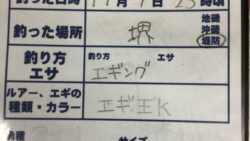 釣った日時 11月9日 23時頃
釣った場所 堺 地磯
沖磯
堤防
釣り方 釣り方 エサ
エサ エギング
ルアー、エギの
種類・カラー エギ王K
サイズ